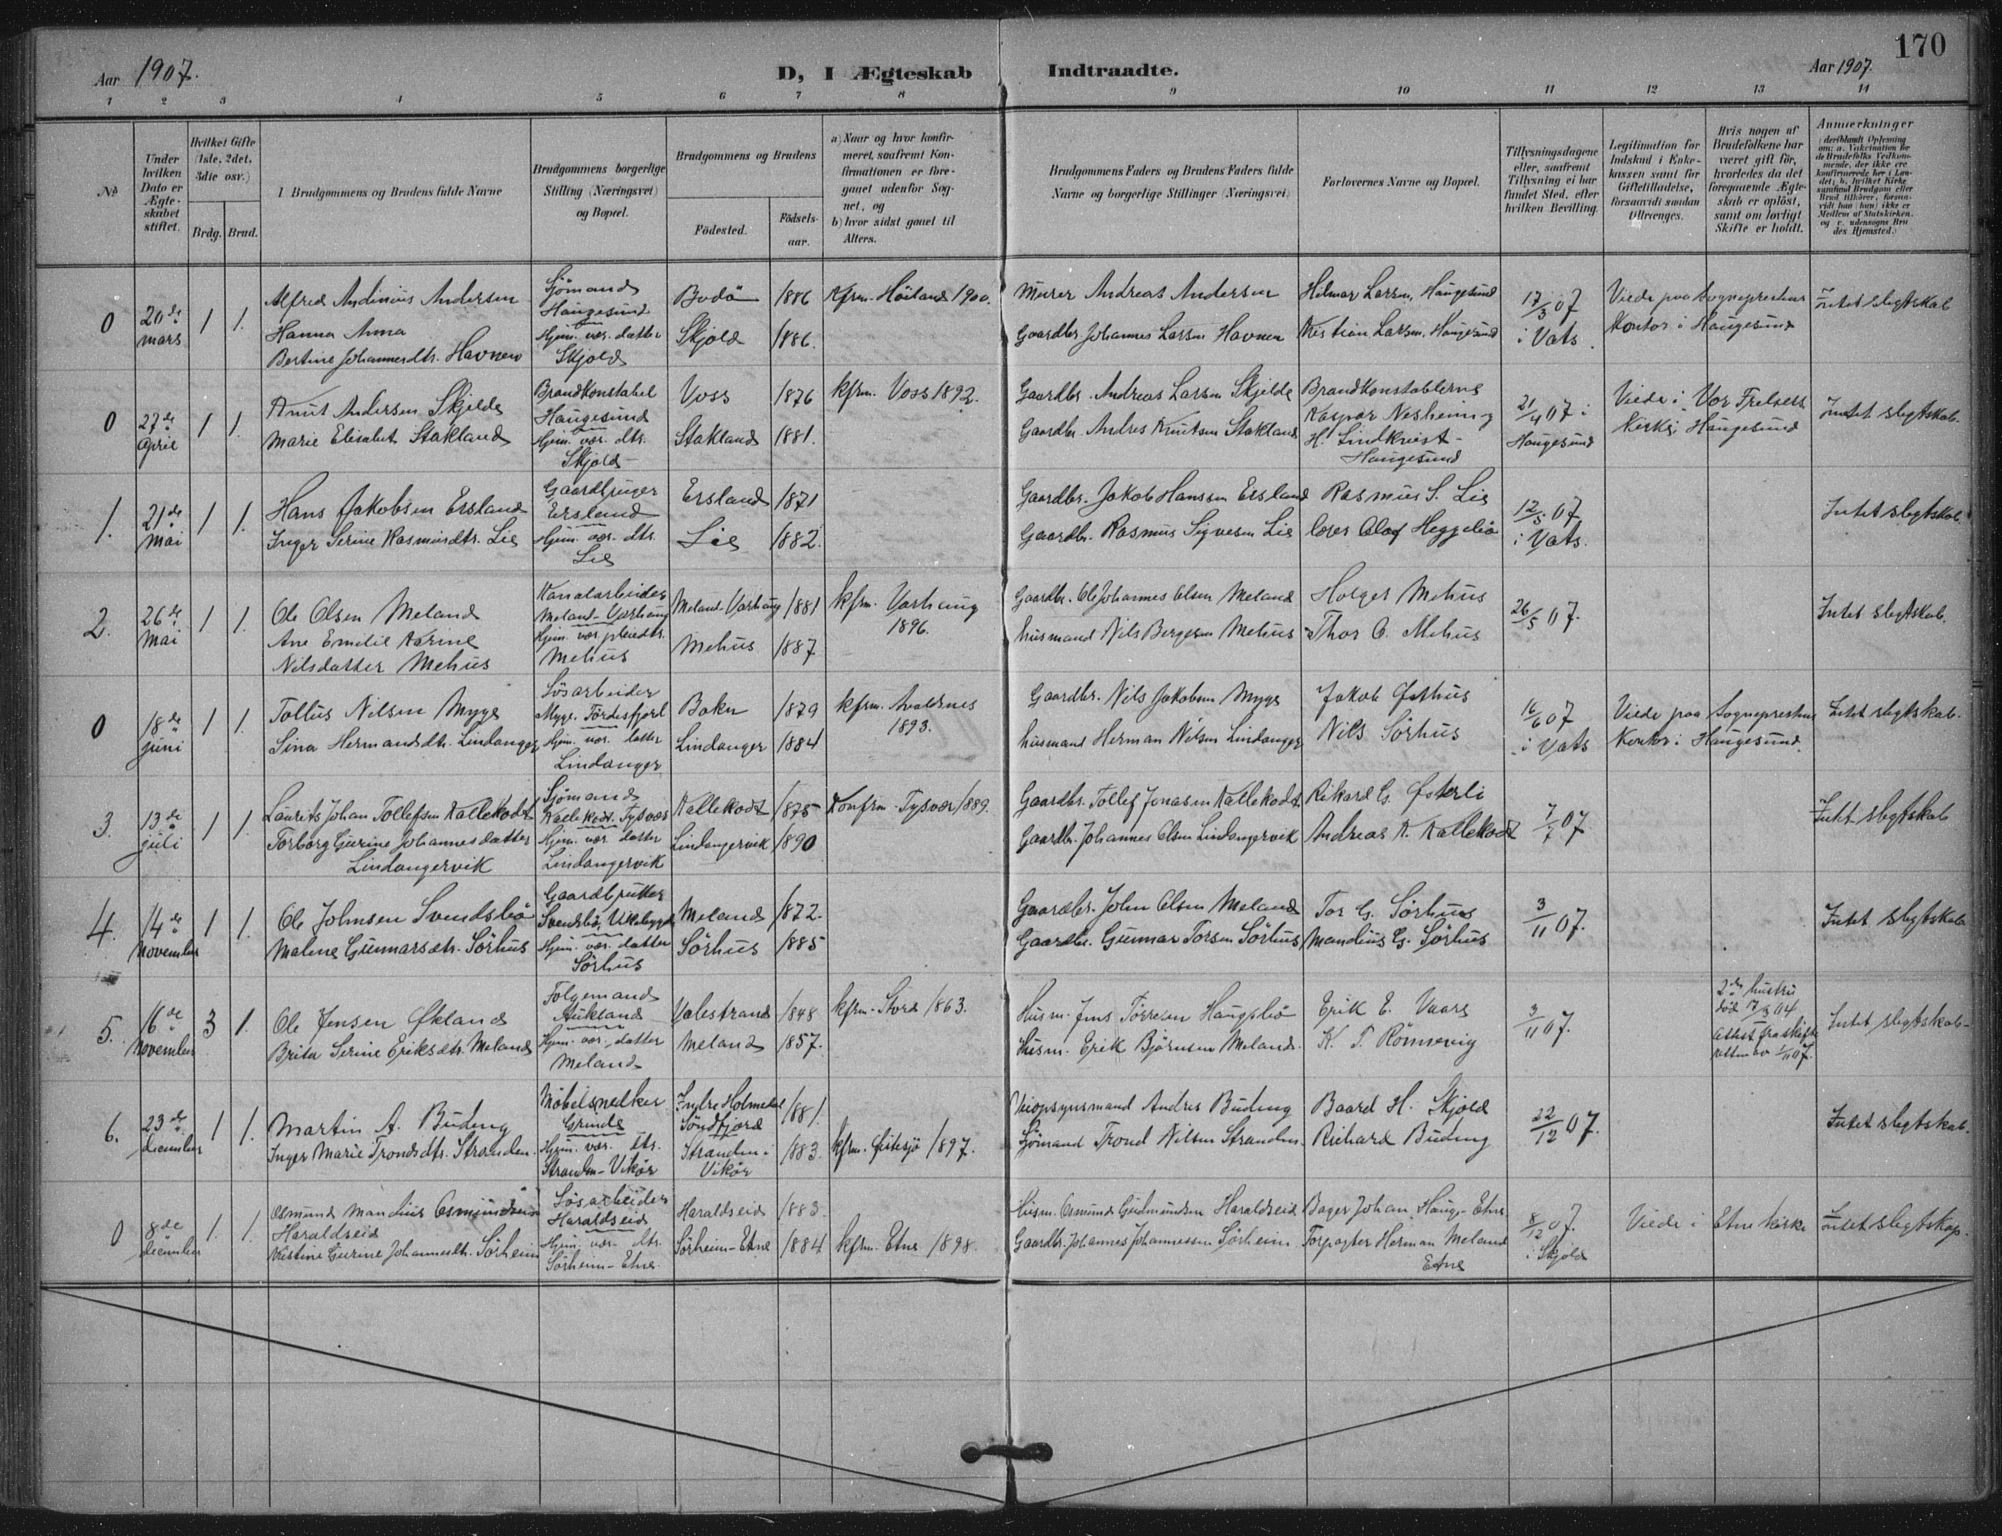 170
Aar 1907.
D, I Ægteskab Indtraadte.
Aar 1907.
1 2 3 4 5 6 7 8 9 10 11 12 13 14
No.
Under hvilken Dato er Ægteskabet stiftet.
Hvilket Gifte (1ste, 2det, 3die osv.)
Brdg. Brud.
Brudgommens og Brudens fulde Navne
Brudgommens borgerlige Stilling (Næringsvei) og Bopæl.
Brudgommens og Brudens
Födested.
Födselsaar.
a) Naar og hvor konfirmeret, saafremt Konfirmationen er foregaaet udenfor Sognet, og
b) hvor sidst gaaet til Alters.
Brudgommens Faders og Brudens Faders fulde Navne og borgerlige Stillinger (Næringsvei)
Forlovernes Navne og Bopæl.
Tillysningsdagene eller, saafremt Tillysning ei har fundet Sted, efter hvilken Bevilling.
Legitimation for Indskud i Enkekassen samt for Giftetilladelse, forsaavidt saadan tiltrænges.
Hvis nogen af Brudefolkene har været gift før, hvorledes da det foregaaende Ægteskab er opløst, samt om lovligt Skifte er holdt.
Anmærkninger
0
20de mars
1 1.
Alfred Andinius Andersen
Hanna Anna
Bertine Johannesdtr. Havnen
Sjømand
Haugesund
Hjem. vær. datter
Skjold
Bodö 1886
Skjold 1886.
Kfrm. Høiland 1900.
Murer Andreas Andersen
Gaardbr. Johannes Larsen Havnen
Hilmar Larsen, Haugesund
Kristian Larsen, Haugesund
17/3 07
i Vats.
Viede paa Sogneprestens
Kontor i Haugesund
Intet slegtskab
0
27de April
1 1.
Knut Andersen Skjelde
Marie Elisabet Stakland
Brandkonstabel
Haugesund
Hjem. vær. dtr.
Skjold
Voss 1876
Stakland 1881.
kfrm. Voss 1892.
Gaardbr. Andreas Larsen Skjelde
Gaardbr. Andres Knutsen Stakland
Brandkonstablerne
Kaspar Nesheim og
H. Lindkvist -
Haugesund
21/4 07 i
Haugesund
Viede i Vor Frelsers
Kirke i Haugesund
Intet slegtskab.
1.
21de Mai
1 1.
Hans Jakobsen Ersland
Inger Serine Rasmusdtr. Lie
Gaardbruger
Ersland
Hjem. vær. dtr.
Lie
Ersland 1871
Lie 1882.
Gaardbr. Jakob Hanssen Ersland
Gaardbr. Rasmus Sigvesen Lie
Rasmus S. Lie
Lærer Olaf Heggebø
12/5 07
i Vats.
Intet slegtskab
2.
26de Mai
1 1.
Ole Olsen Meland
Ane Emilie
Nilsdatter Mehus
Kanalarbeider
Meland - Varhaug
Mehus
Meland - Varhaug 1881
Mehus 1887
kfrm. Varhaug
1896.
Gaardbr. Ole Johannes Olsen Meland
husmand Nils Bergesen Mehus
Holger Mehus
Thor O. Mehus
26/5 07.
Intet slegtskab.
0
18de juni
1 1.
Tollus Nilsen Myge
Sina Hermandsdtr. Lindanger
Løsarbeider
Myge. Førdesfjord
Hjem. vær. datter
Lindanger
Bokn 1879
Lindanger 1884
kfrm. Avaldsnes
1893.
Gaardbr. Nils Jakobsen Myge
husmand Herman Nilsen Lindanger
Jakob Østhus
Nils Sørhus
16/6 07
i Vats
Viede paa Sogneprestens
Kontor i Haugesund.
Intet slegtskab.
3.
13de juli
1 1.
Laurits Johan Tollefsen Kallekodt
Torborg Gurine Johannesdatter
Lindangervik
Sjømand
Kallekodt. Tysvær
Hjem. vær. datter
Lindangervik
Kallekodt 1875
Lindangervik 1890
Konfrm. Tysvær 1889.
Gaardbr. Tollef Jonasen Kallekodt
Gaardbr. Johannes Olsen Lindangervik
Rikard G. Østerli
Andreas K. Kallekodt
7/7 07
Intet slegtskab
4.
14de November
1 1.
Ole Johnsen Svendsbø
Malene Gunnarsdtr. Sørhus
Svendsbø,
Hjem. vær. datter
Sørhus
Meland 1872.
Sørhus 1885
Gaardbr. John Olsen Meland
Gaardbr. Gunnar Torsen Sørhus
Tor G. Sørhus
Mandius G. Sørhus
3/11 07.
Intet slegtskab
5.
16de November
3 1.
Ole Jensen Økland
Brita Serine Eriksdtr. Meland
Følgemand
Aukland
Hjem. vær. datter
Meland
Valestrand 1848
Meland 1857.
kfrm. Stord 1863.
Husm. Jens Tørresen Haugsbø
Husm. Erik Bjørnsen Meland.
Erik E. Vaare
K. T. Rönnevig
3/11 07.
2de hustru
død 17/3 04
Attest fra skifteretten av 1/11 07.
Intet slegtskab
6.
23de december
1 1.
Martin A. Buding
Inger Marie Trondsdtr. Stranden.
Møbelsnedker
Grinde
Hjem. vær. dtr.
Stranden - Vikør
Indre Holmedal
Söndfjord 1881.
Stranden -
Vikør 1883.
kfrm. Østesjø 1897.
Skiopsynsmand Andres Buding
Sjømand Trond Nilsen Stranden.
Baard H. Skjold
Richard Buding
22/12 07.
Intet slegtskab.
0
8de december
1. 1.
Osmund Mandius Osmundsen
Haraldseid
Kristine Gurine Johannesdtr. Sørheim
Løsarbeider
Haraldseid
Hjem. vær. dtr.
Sørheim - Etne.
Haraldseid 1883.
Sørheim - Etne 1884
kfrm. Etne 1898.
Husm. Osmund Gudmundsen Haraldseid
Gaardbr. Johannes Johannessen Sørheim
Bager Johan Haug - Etne
Forpagter Herman Meland
Etne
8/12 07.
i Skjold
Viede i Etne kirke
Intet slegtskap.